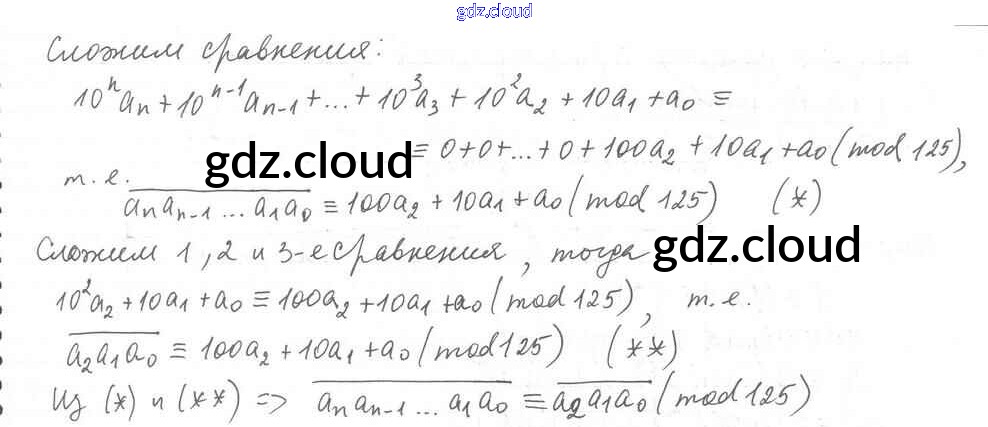 gdz.cloud
Сложим сравнения:
10ⁿaₙ + 10ⁿ⁻¹aₙ₋₁ + ... + 10³a₃ + 10²a₂ + 10a₁ + a₀ ≡
≡ 0 + 0 + ... + 0 + 100a₂ + 10a₁ + a₀ (mod 125),
gdz.cloud
т.е.
a̅ₙa̅ₙ₋₁...a̅₁a̅₀ ≡ 100a₂ + 10a₁ + a₀ (mod 125) (*)
Сложим 1, 2 и 3-е сравнения, тогда
gdz.cloud
10²a₂ + 10a₁ + a₀ ≡ 100a₂ + 10a₁ + a₀ (mod 125), т.е.
a̅₂a̅₁a̅₀ ≡ 100a₂ + 10a₁ + a₀ (mod 125) (**)
Из (*) и (**) => a̅ₙa̅ₙ₋₁...a̅₁a̅₀ ≡ a̅₂a̅₁a̅₀ (mod 125)